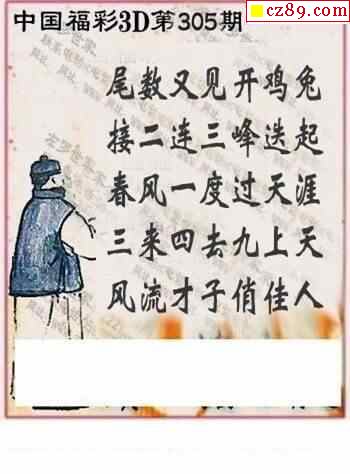 cz89.com
中国福彩3D第305期
尾数又见开鸡兔
接二连三峰迭起
春风一度过天涯
三来四去九上天
风流才子俏佳人